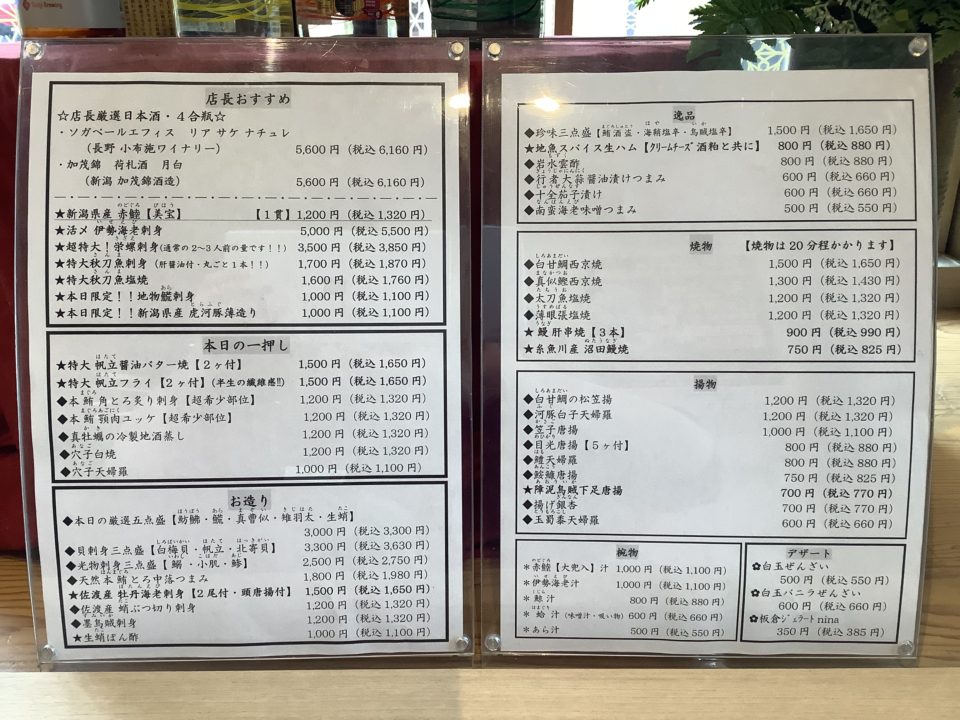 店長おすすめ
☆店長厳選日本酒・4合瓶☆
・ソガペールエフィス リア サケ ナチュレ
（長野 小布施ワイナリー） 5,600円（税込6,160円）
・加茂錦 荷札酒 月白
（新潟 加茂錦酒造） 5,600円（税込6,160円）
★新潟県産 赤鯥【美宝】 【1貫】1,200円（税込1,320円）
★活〆 伊勢海老刺身 5,000円（税込5,500円）
★超特大！栄螺刺身(通常の2～3人前の量です！！) 3,500円（税込3,850円）
★特大秋刀魚刺身（肝醤油付・丸ごと1本！！） 1,700円（税込1,870円）
★特大秋刀魚塩焼 1,600円（税込1,760円）
★本日限定！！地物𩺊刺身 1,000円（税込1,100円）
★本日限定！！新潟県産 虎河豚薄造り 1,000円（税込1,100円）
本日の一押し
★特大 帆立醤油バター焼【2ヶ付】 1,500円（税込1,650円）
★特大 帆立フライ【2ヶ付】(半生の繊維感!!) 1,500円（税込1,650円）
◆本鮪 角とろ炙り刺身【超希少部位】 1,200円（税込1,320円）
◆本鮪 顎肉ユッケ【超希少部位】 1,200円（税込1,320円）
◆真牡蠣の冷製地酒蒸し 1,200円（税込1,320円）
◆穴子白焼 1,200円（税込1,320円）
◆穴子天婦羅 1,000円（税込1,100円）
お造り
◆本日の厳選五点盛【魴鮄・𩺊・真曹以・雉羽太・生蛸】
3,000円（税込3,300円）
◆貝刺身三点盛【白梅貝・帆立・北寄貝】 3,300円（税込3,630円）
◆光物刺身三点盛【鰯・小肌・鯵】 2,500円（税込2,750円）
◆天然本鮪とろ中落つまみ 1,800円（税込1,980円）
★佐渡産 牡丹海老刺身【2尾付・頭唐揚付】 1,500円（税込1,650円）
◆佐渡産 蛸ぶつ切り刺身 1,200円（税込1,320円）
◆墨烏賊刺身 1,200円（税込1,320円）
★生蛸ぽん酢 1,000円（税込1,100円）
逸品
◆珍味三点盛【鮪酒盗・海鞘塩辛・烏賊塩辛】 1,500円（税込1,650円）
★地魚スパイス生ハム【ｸﾘｰﾑﾁｰｽﾞ酒粕と共に】 800円（税込880円）
◆岩水雲酢 800円（税込880円）
◆行者大蒜醤油漬けつまみ 600円（税込660円）
◆十全茄子漬け 600円（税込660円）
◆南蛮海老味噌つまみ 500円（税込550円）
焼物 【焼物は20分程かかります】
◆白甘鯛西京焼 1,500円（税込1,650円）
◆真似鰹西京焼 1,300円（税込1,430円）
◆太刀魚塩焼 1,200円（税込1,320円）
◆薄眼張塩焼 1,200円（税込1,320円）
★鰻 肝串焼【3本】 900円（税込990円）
★糸魚川産 沼田鰻焼 750円（税込825円）
揚物
◆白甘鯛の松笠揚 1,200円（税込1,320円）
◆河豚白子天婦羅 1,200円（税込1,320円）
◆笠子唐揚 1,000円（税込1,100円）
◆目光唐揚【5ヶ付】 800円（税込880円）
◆鱧天婦羅 800円（税込880円）
◆鮟鱇唐揚 750円（税込825円）
★障泥烏賊下足唐揚 700円（税込770円）
◆揚げ銀杏 700円（税込770円）
◆玉蜀黍天婦羅 600円（税込660円）
椀物
＊赤鯥【大兜入】汁 1,000円（税込1,100円）
＊伊勢海老汁 1,000円（税込1,100円）
＊鯨汁 800円（税込880円）
＊蛤汁（味噌汁・吸い物） 600円（税込660円）
＊あら汁 500円（税込550円）
デザート
✿白玉ぜんざい
500円（税込550円）
✿白玉バニラぜんざい
600円（税込660円）
✿板倉ｼﾞｪﾗｰﾄ nina
350円（税込385円）